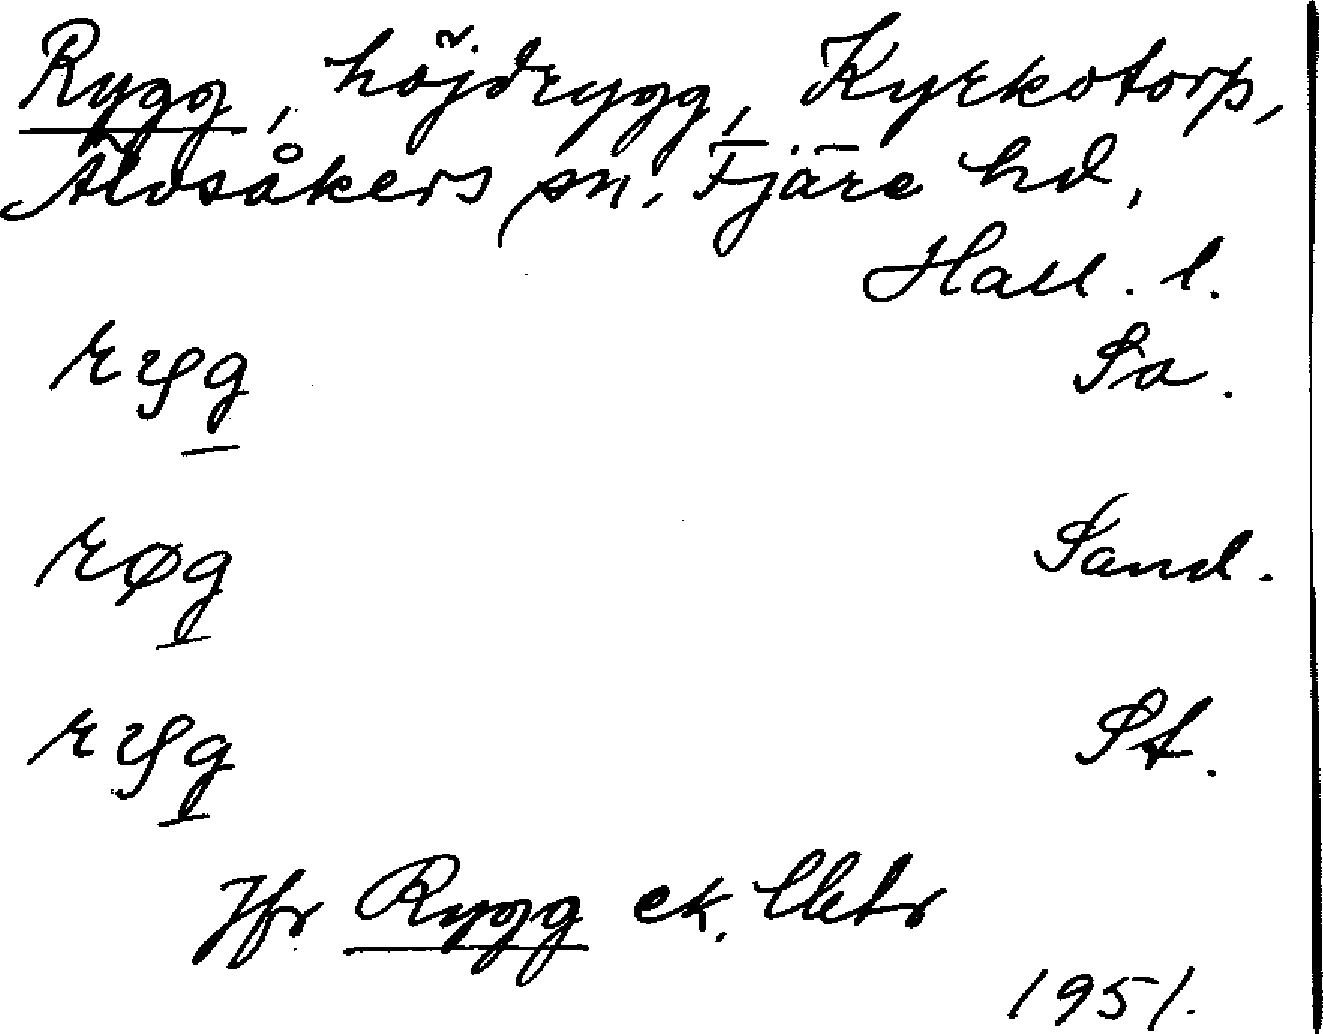 Rygg, höjdrygg, Kyrkotorp,
Älvsåkers sn. Fjäre hd,
Hall. l.
ryg Sa.
røg Sand.
ryg St.
Jfr Rygg ek.
1951.